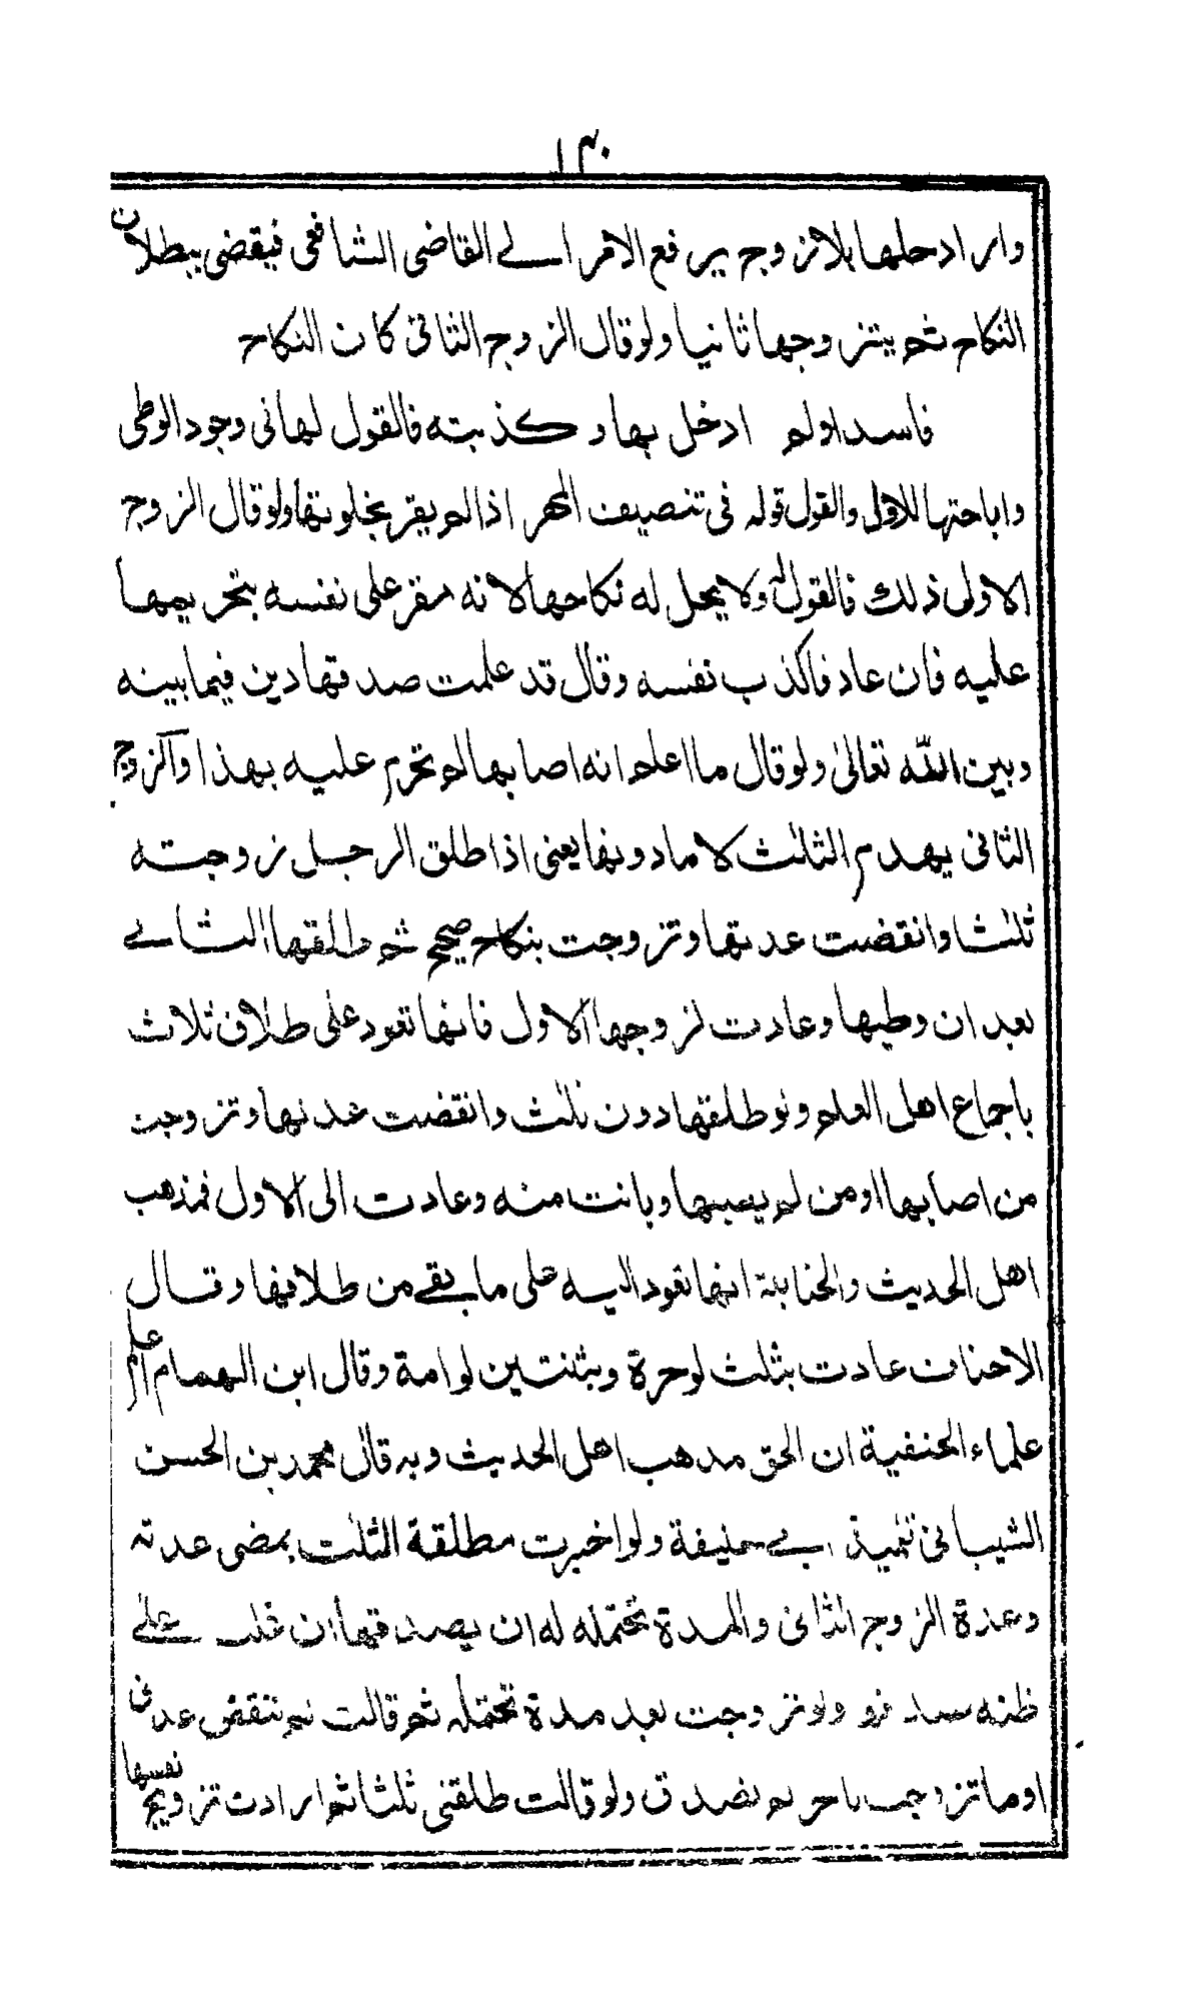 ١٣٠
واراد حلها بلا زوج يرفع الامر الے القاضی الشافعی فيقضی ببطلان
النكاح ثم يتزوجها ثانيا ولو قال الزوج الثانی كان النكاح
فاسدا ولم ادخل بها وكذبته فالقول لها فی وجود الوطی
واباحتها للاول والقول قوله فی تنصيف المهر اذا لم يقر بخلوتها ولو قال الزوج
الاولی ذلك فالقول له ولا يحل له نكاحها لانه مقر علی نفسه بتحريمها
عليه فان عاد فاكذب نفسه وقال قد علمت صدقها دين فيما بينه
وبين الله تعالیٰ ولو قال ما اعلم انه اصابها لم تحرم عليه بهذا والزوج
الثانی يهدم الثلٰث لا ما دونها يعنی اذا طلق الرجل زوجته
ثلٰثا وانقضت عدتها وتزوجت بنكاح صحيح ثم طلقها الثانے
بعد ان وطيها وعادت لزوجها الاول فانها تعود علی طلاق ثلاث
باجماع اهل العلم ولو طلقها دون ثلٰث وانقضت عدتها وتزوجت
من اصابها او من لم يصبها وبانت منه وعادت الی الاول فمذهب
اهل الحديث والحنابلة انها تعود اليه علی ما بقے من طلاقها وقال
الاحناف عادت بثلٰث لو حرة وبثنتين لو امة وقال ابن الهمام اعلم
علماء الحنفية ان الحق مذهب اهل الحديث وبه قال محمد بن الحسن
الشيبانی تلميذ ابے حنيفة ولو اخبرت مطلقة الثلٰث بمضی عدته
وعدة الزوج الثانی والمدة تحتمله له ان يصدقها ان غلب علے
ظنه صدقها ولو تزوجت بعد مدة تحتمله ثم قالت لم تنقض عدتی
او ما تزوجت باخر لم تصدق ولو قالت طلقنی ثلٰثا ثم ارادت تزويج نفسها